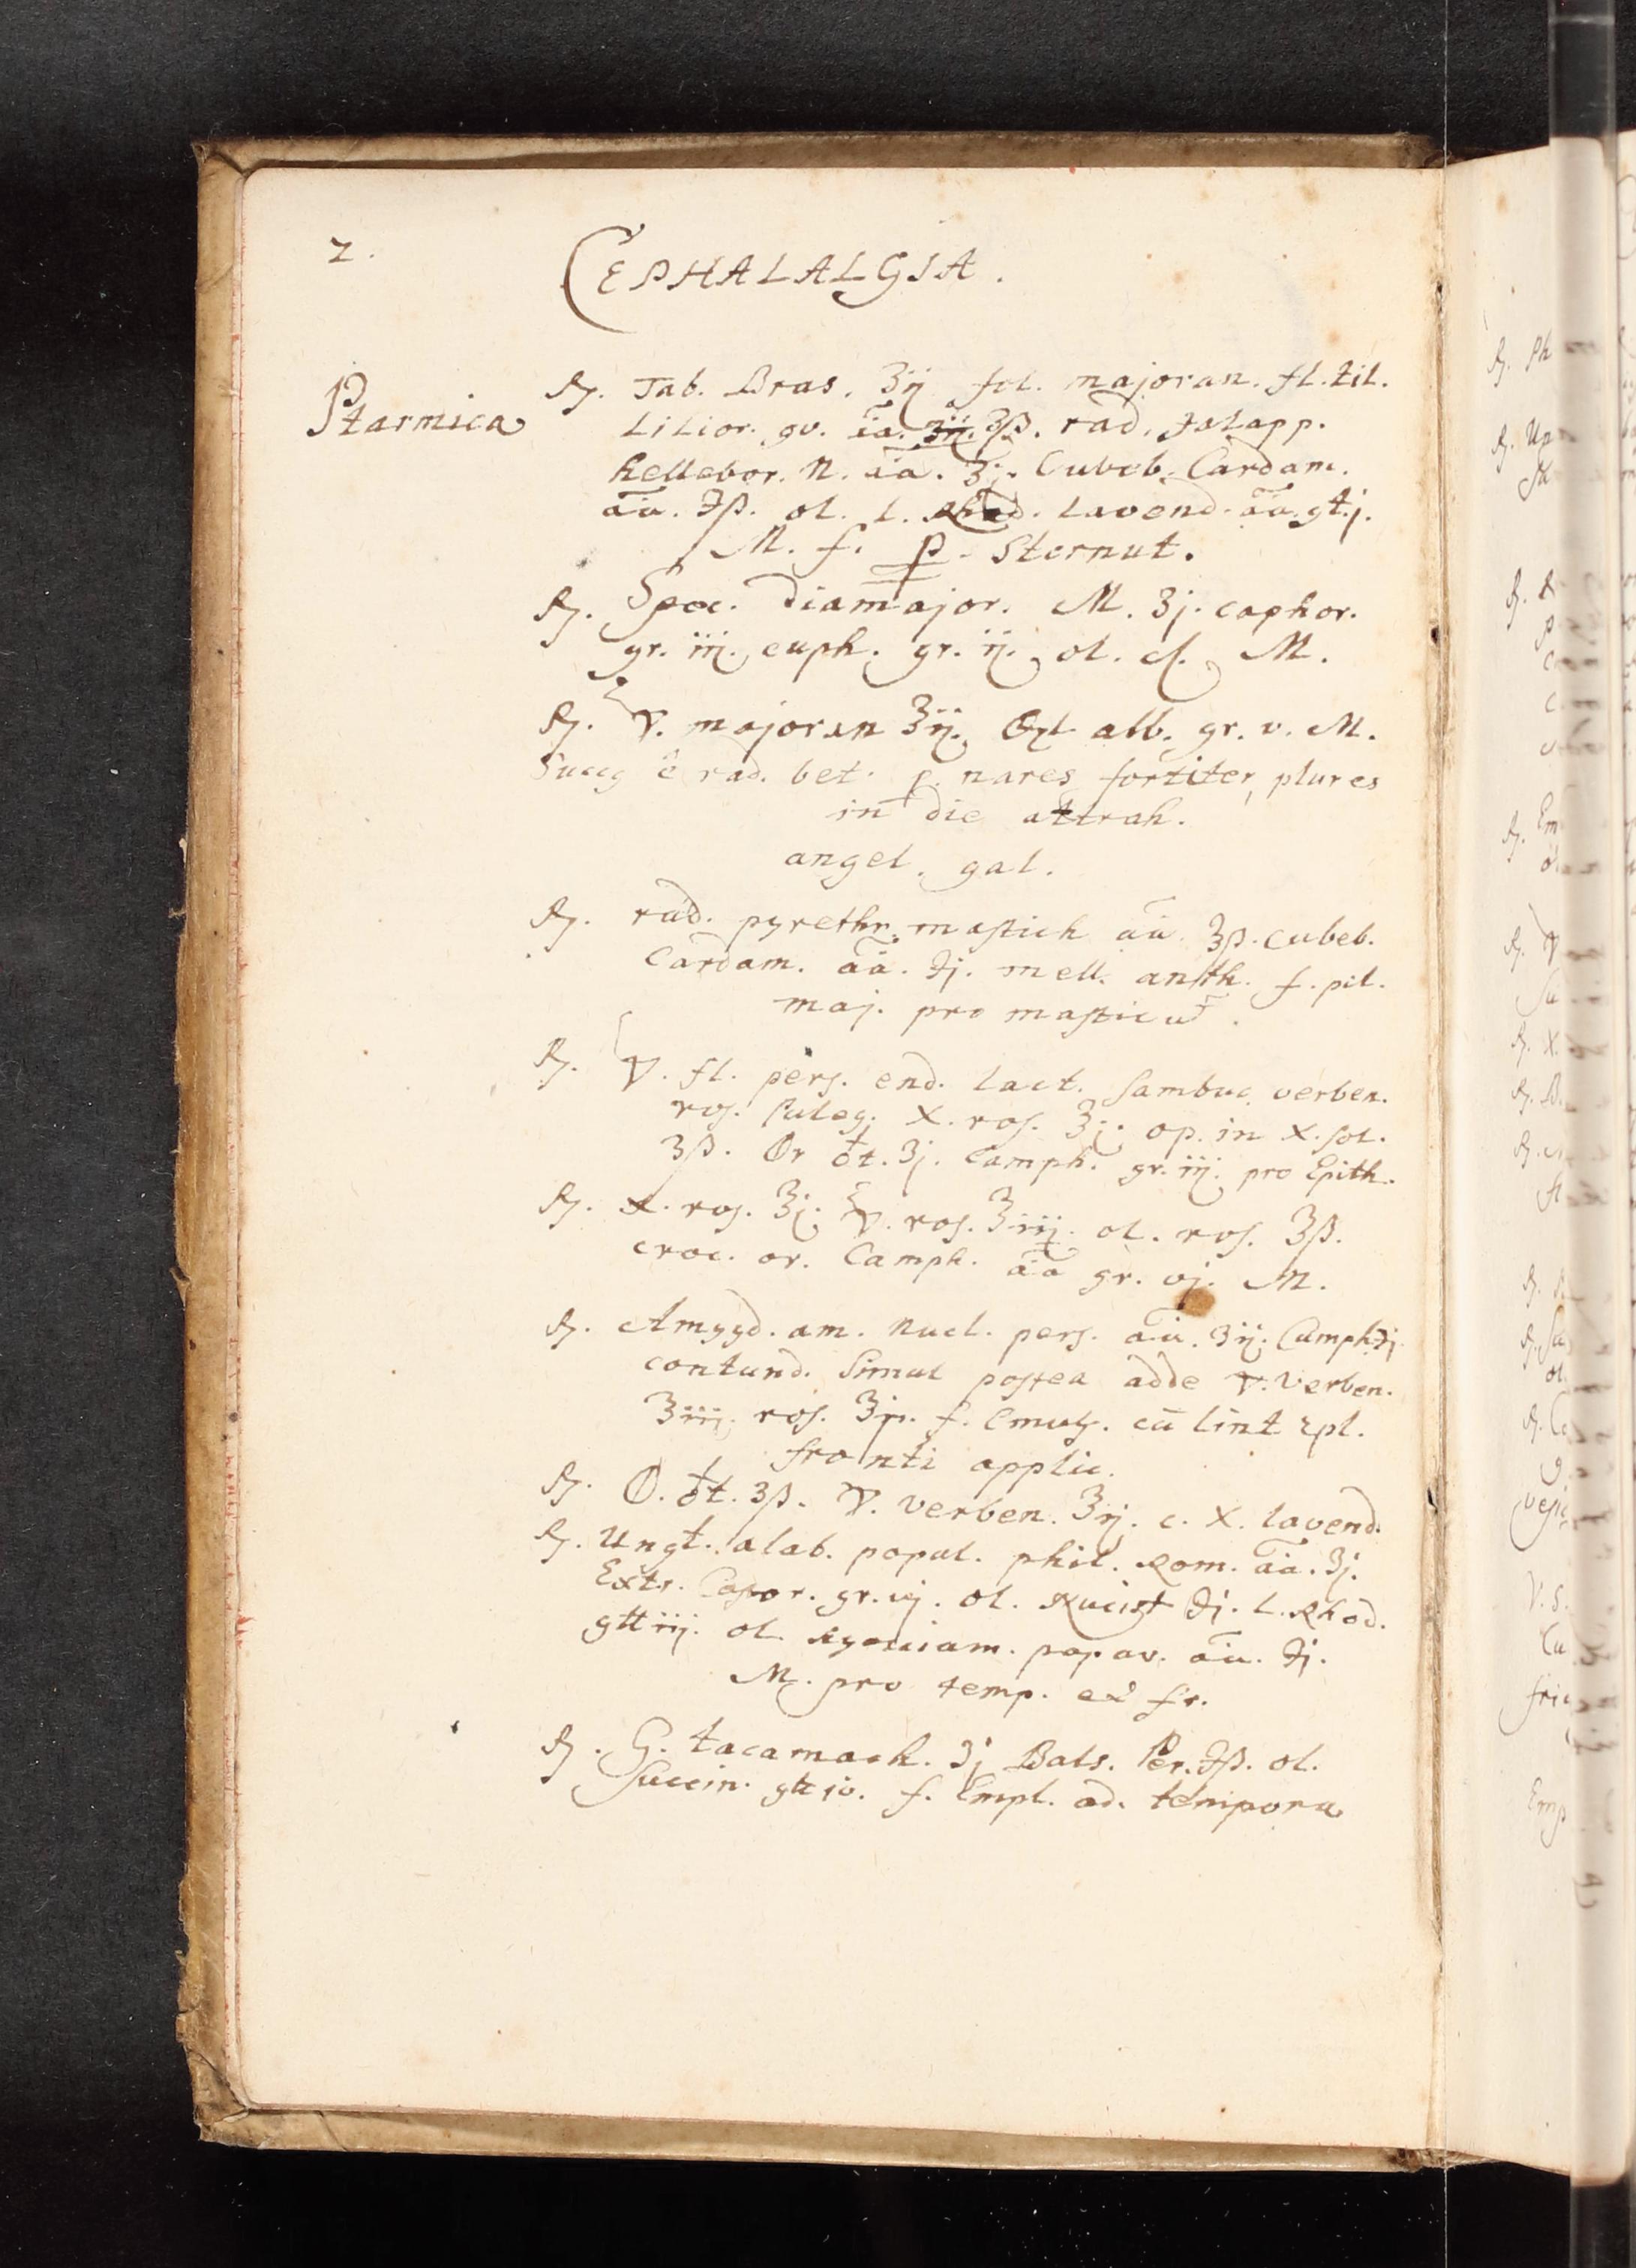 2.
CEPHALALGIA.
Ptarmica
℞. Tab. Bras. ʒij fol. majoran. fl. til.
Lilior. gv. āā. ʒij. ʒß. rad. Jalapp.
hellebor. N. āā. ʒj. Cubeb. Cardam.
āā. ℈ß. ol. l. Rhod. Lavend. āā. gt.j.
M. f. p. Sternut.
℞. Spec. diamajor. M. ʒj. caphor.
gr. iij. euph. gr. ij. ol. M.
℞. ▽. majoran ℥ij. alb. gr. v. M.
Succ9 è rad. bet. p. nares fortiter, plures
in die attrah.
angel. gal.
℞. rad. pyrethr. mastich āā ʒß. cubeb.
Cardam. āā. ℈j. mell. anth. f. pil.
maj. pro masticat̄.
℞. ▽. fl. pers. end. lact. Sambuc. verben.
ros. Puleg. X. ros. ℥j. op. in X. sol.
ʒß. ʒj. Camph. gr. iij. pro Epith.
℞. X. ros. ℥j. ▽. ros. ℥iij. ol. ros. ℥ß.
croc. or. Camph. āā gr. vj. M.
℞. Amygd. am. Nucl. pers. āā. ʒij. Camph. ℈j.
contund. Simul postea adde ▽. Verben.
℥iij. ros. ℥jß. f. Emuls. cū lint
fronti applic.
℞. ʒß. ▽. verben. ℥ij. c. X. lavend.
℞. Ungt. alab. popul. phil. Rom. āā. ʒj.
Extr. gr. vj. ol. Nucist ℈j. l. Rhod.
gtt iij. ol. Hyosciam. papav. āā. ℈j.
M. pro temp. et fr.
℞. G. tacamach. ʒj Bals. Per. ℈ß. ol.
Succin. gtt iv. f. Empl. ad. tempora